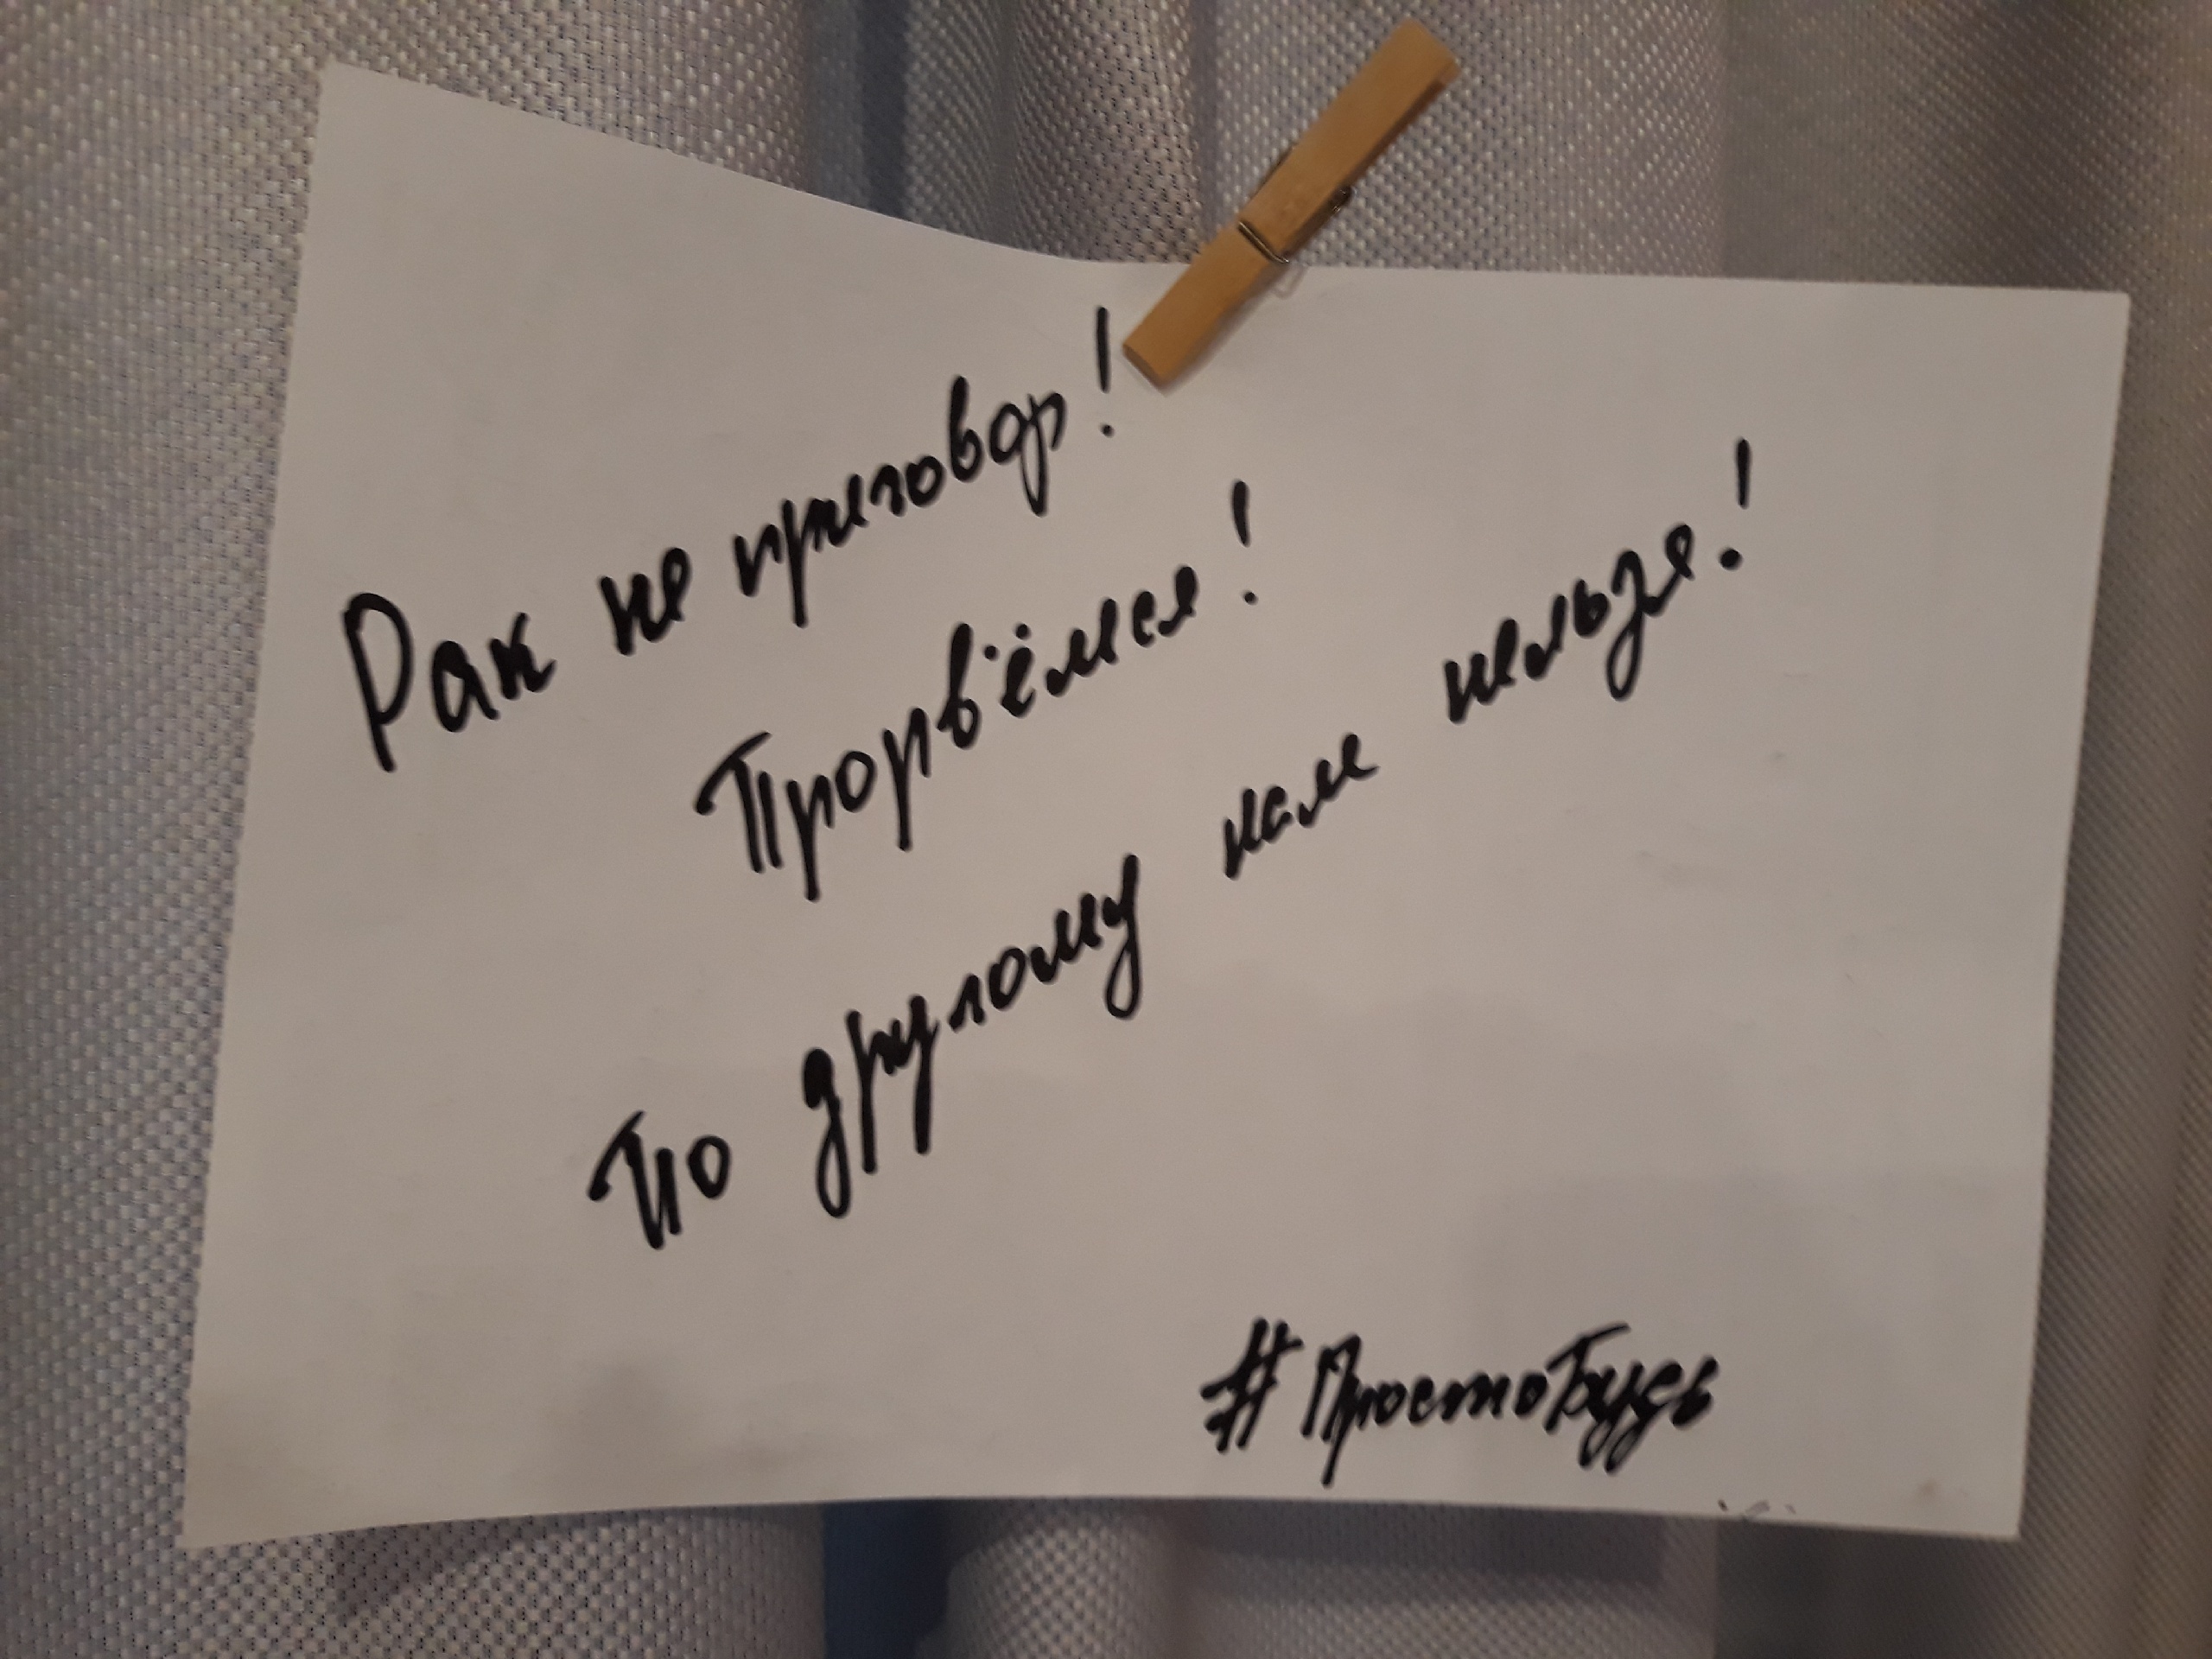 Рак не приговор!
Прорвёмся!
По другому нам нельзя!
#ПростоБудь